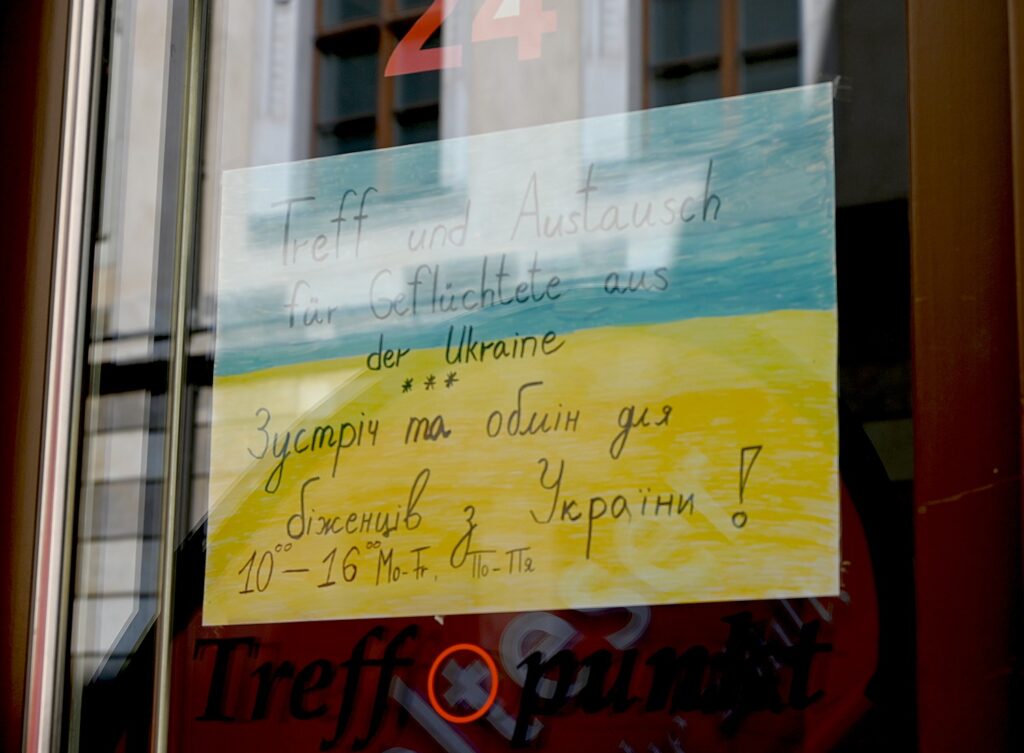 24
Treff und Austausch
für Geflüchtete aus
der Ukraine
***
Зустріч та обмін для
біженців з України!
10⁰⁰ – 16⁰⁰ Mo-Fr, По-Пя
Treff punkt